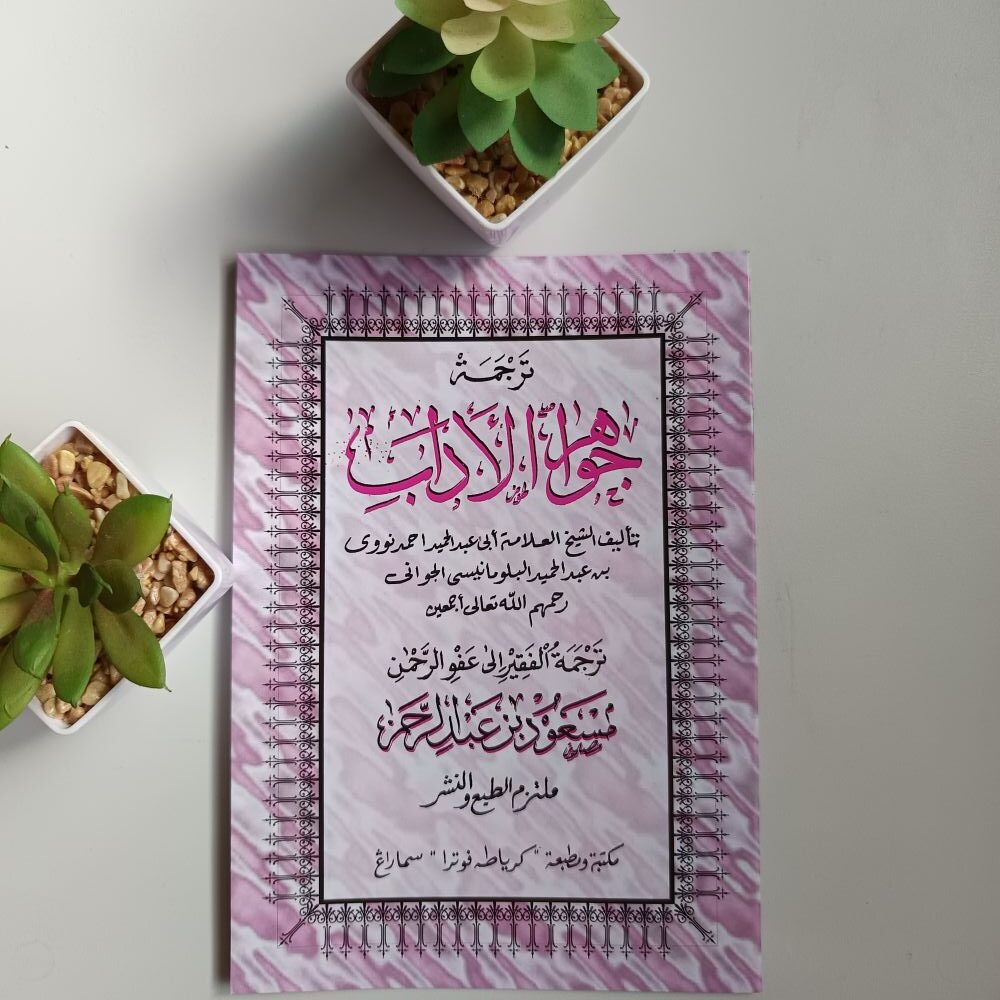 تَرْجَمَةْ
جَوَاهِرُ الْأَدَابِ
تأليف الشيخ العلامة أبى عبد الحميد احمد نووى
بن عبد الحميد البلومانيسى الجوانى
رحمهم الله تعالى أجمعين
تَرْجَمَةُ الْفَقِيْرِ إِلَى عَفْوِ الرَّحْمٰنِ
مَسْعُوْد بْن عَبْدِ الرَّحْمٰن
ملتزم الطبع والنشر
مكتبة ومطبعة "كرياطه فوترا" سماراڠ